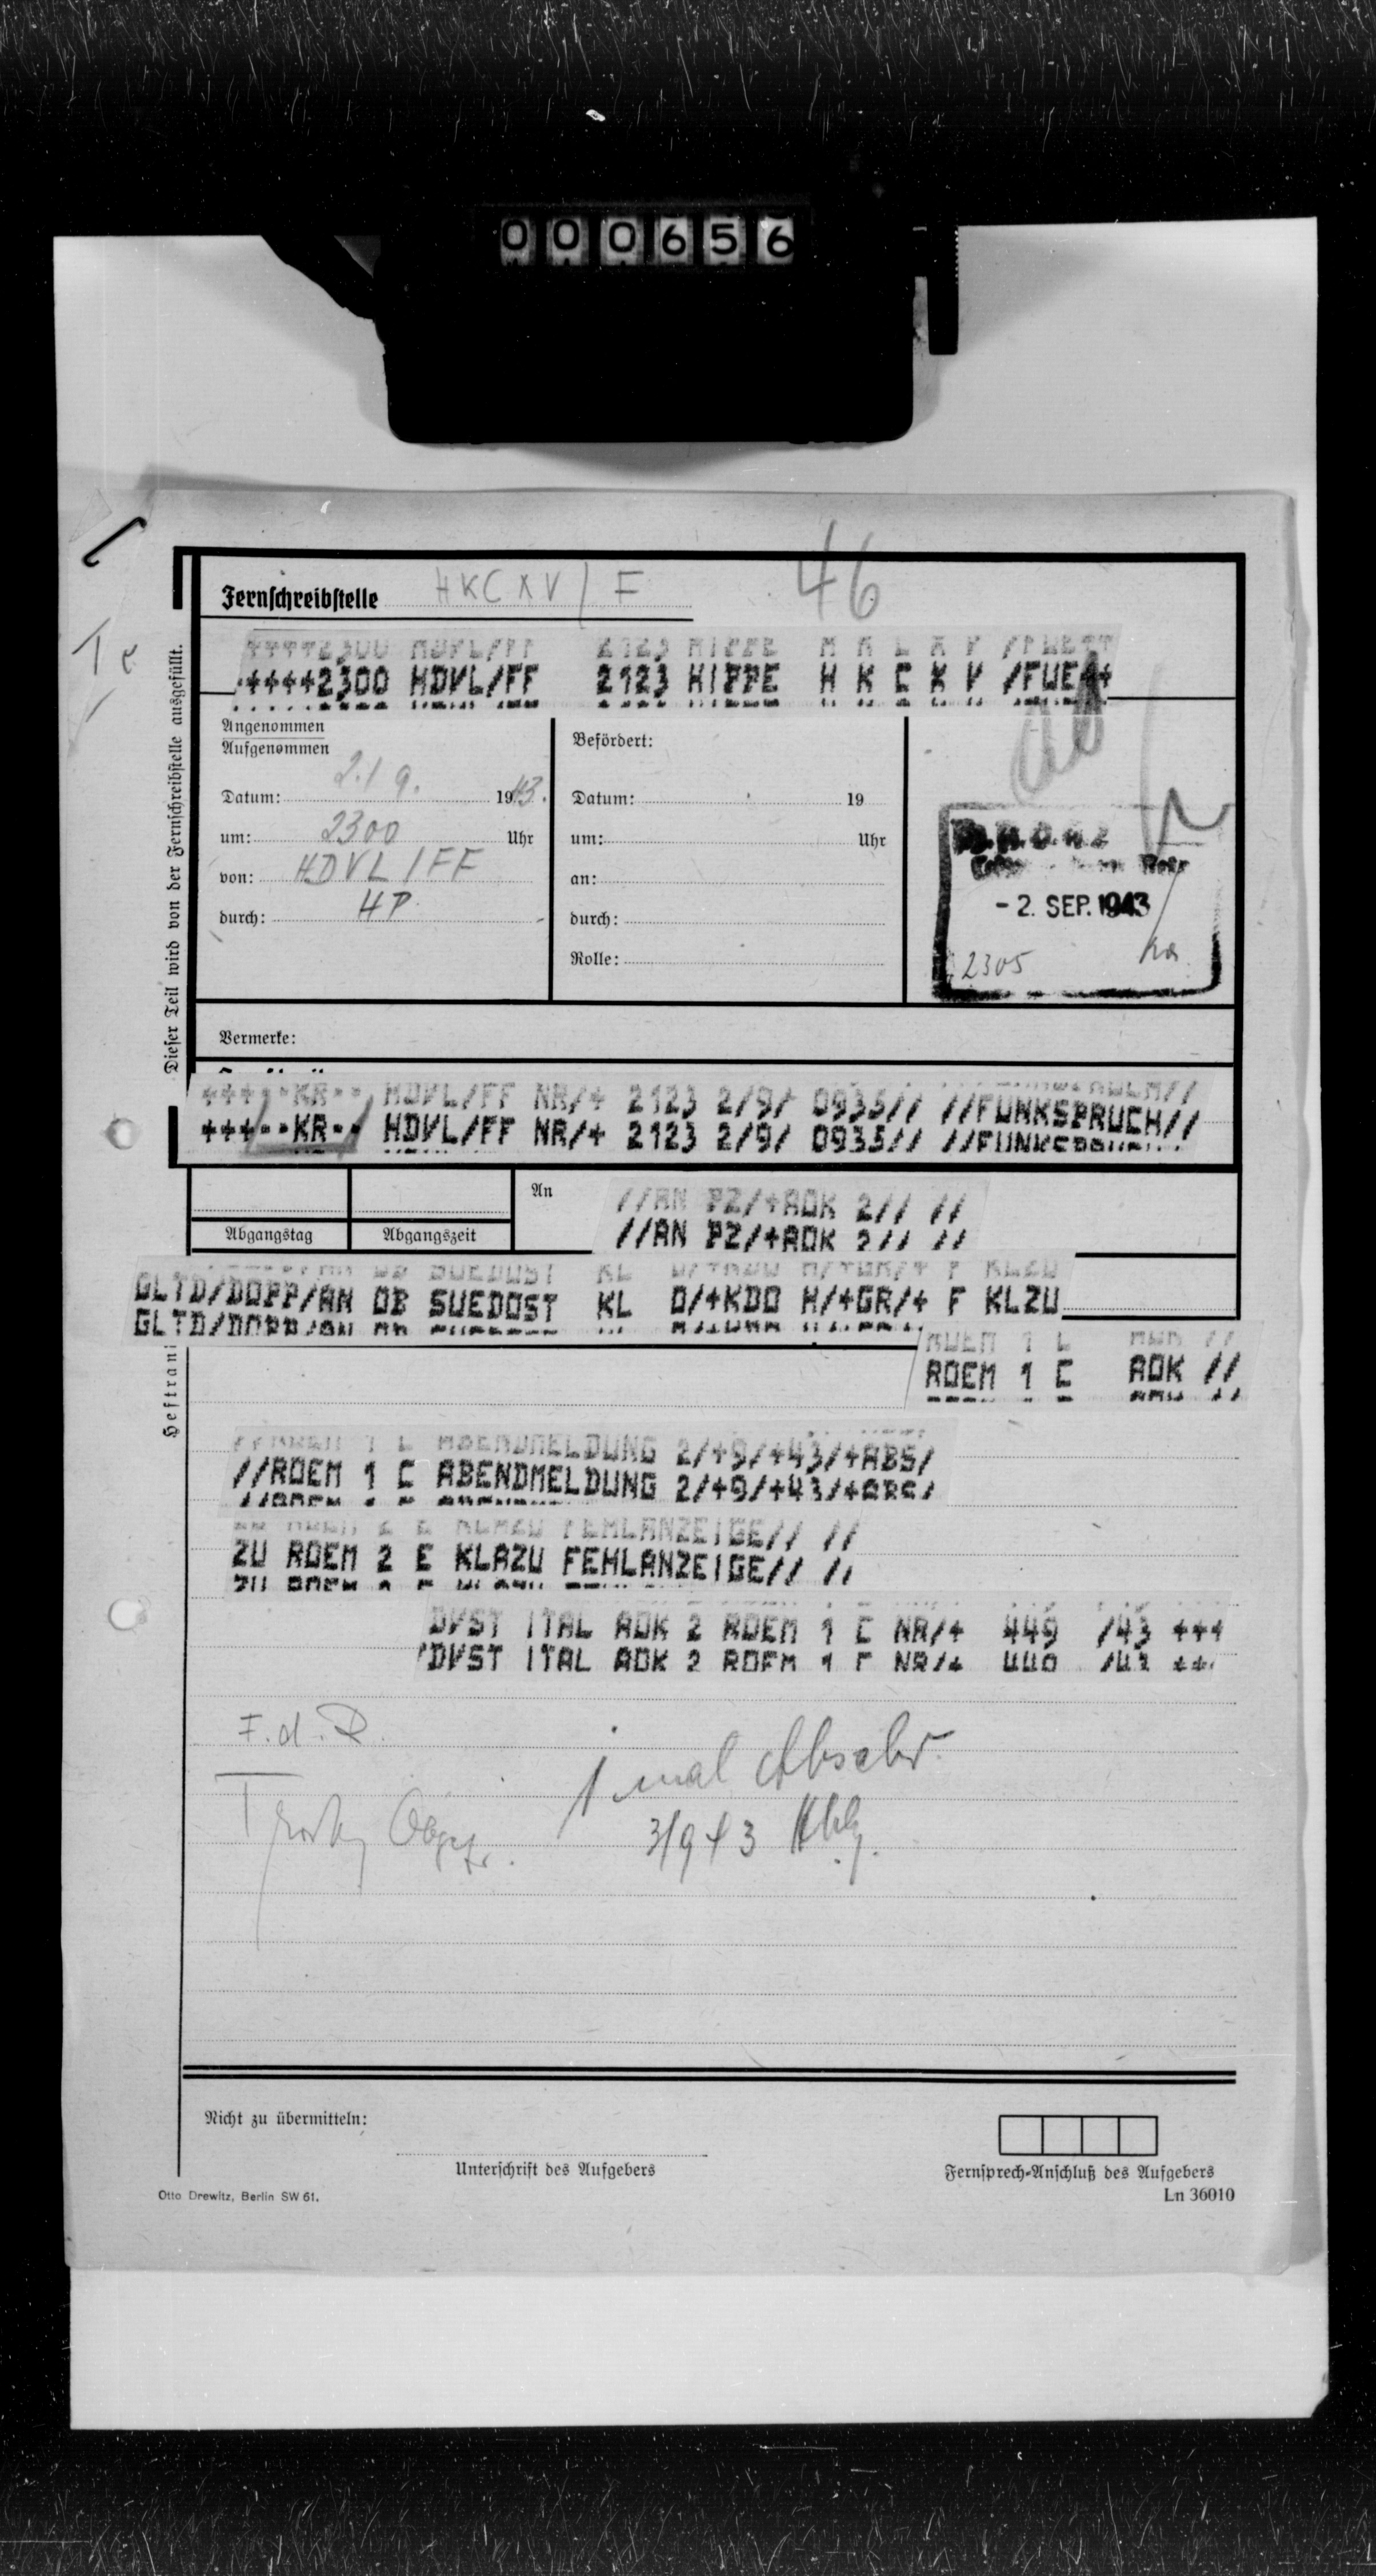 000656
Fernschreibstelle HKCXV/F 46
++++2300 HDVL/FF 2123 HIPPE H K C X V /FUE++
Ic
Dieser Teil wird von der Fernschreibstelle ausgefüllt.
Angenommen
Aufgenommen
Datum: 2./9. 1943.
um: 2300 Uhr
von: HDVL/FF
durch: HP.
Befördert:
Datum: 19
um: Uhr
an:
durch:
Rolle:
- 2. SEP. 1943
2305
Vermerke:
+++--KR-- HDVL/FF NR/+ 2123 2/9/ 0935// //FUNKSPRUCH//
Abgangstag
Abgangszeit
An //AN PZ/+AOK 2// //
GLTD/DOPP/AN OB SUEDOST KL O/+KDO H/+GR/+ F KLZU
ROEM 1 C AOK //
Heftrand
//ROEM 1 C ABENDMELDUNG 2/+9/+43/+ABS/
ZU ROEM 2 E KLAZU FEHLANZEIGE// //
DVST ITAL AOK 2 ROEM 1 C NR/+ 449 /43 +++
F.d.R.
Obgefr.
1 mal Abschr.
3/9 43
Nicht zu übermitteln:
Unterschrift des Aufgebers
Fernsprech-Anschluß des Aufgebers
Otto Drewitz, Berlin SW 61.
Ln 36010